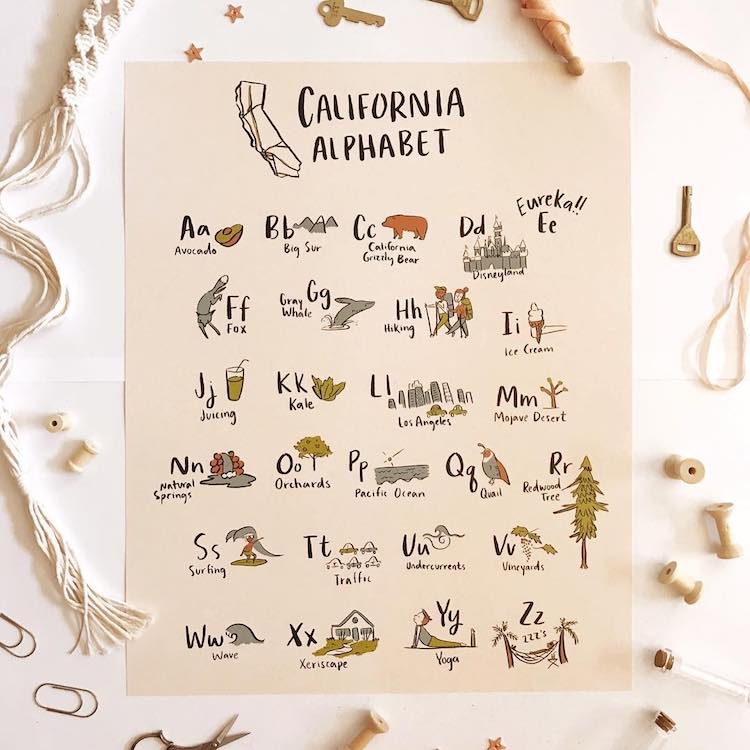 CALIFORNIA
ALPHABET
Aa
Avocado
Bb
Big Sur
Cc
California
Grizzly Bear
Dd
Disneyland
Eureka!!
Ee
Ff
Fox
Gg
Gray
Whale
Hh
Hiking
Ii
Ice Cream
Jj
Juicing
KK
Kale
Ll
Los Angeles
Mm
Mojave Desert
Nn
Natural
Springs
Oo
Orchards
Pp
Pacific Ocean
Qq
Quail
Rr
Redwood
Tree
Ss
Surfing
Tt
Traffic
Uu
Undercurrents
Vv
Vineyards
Ww
Wave
Xx
Xeriscape
Yy
Yoga
Zz
zzz's